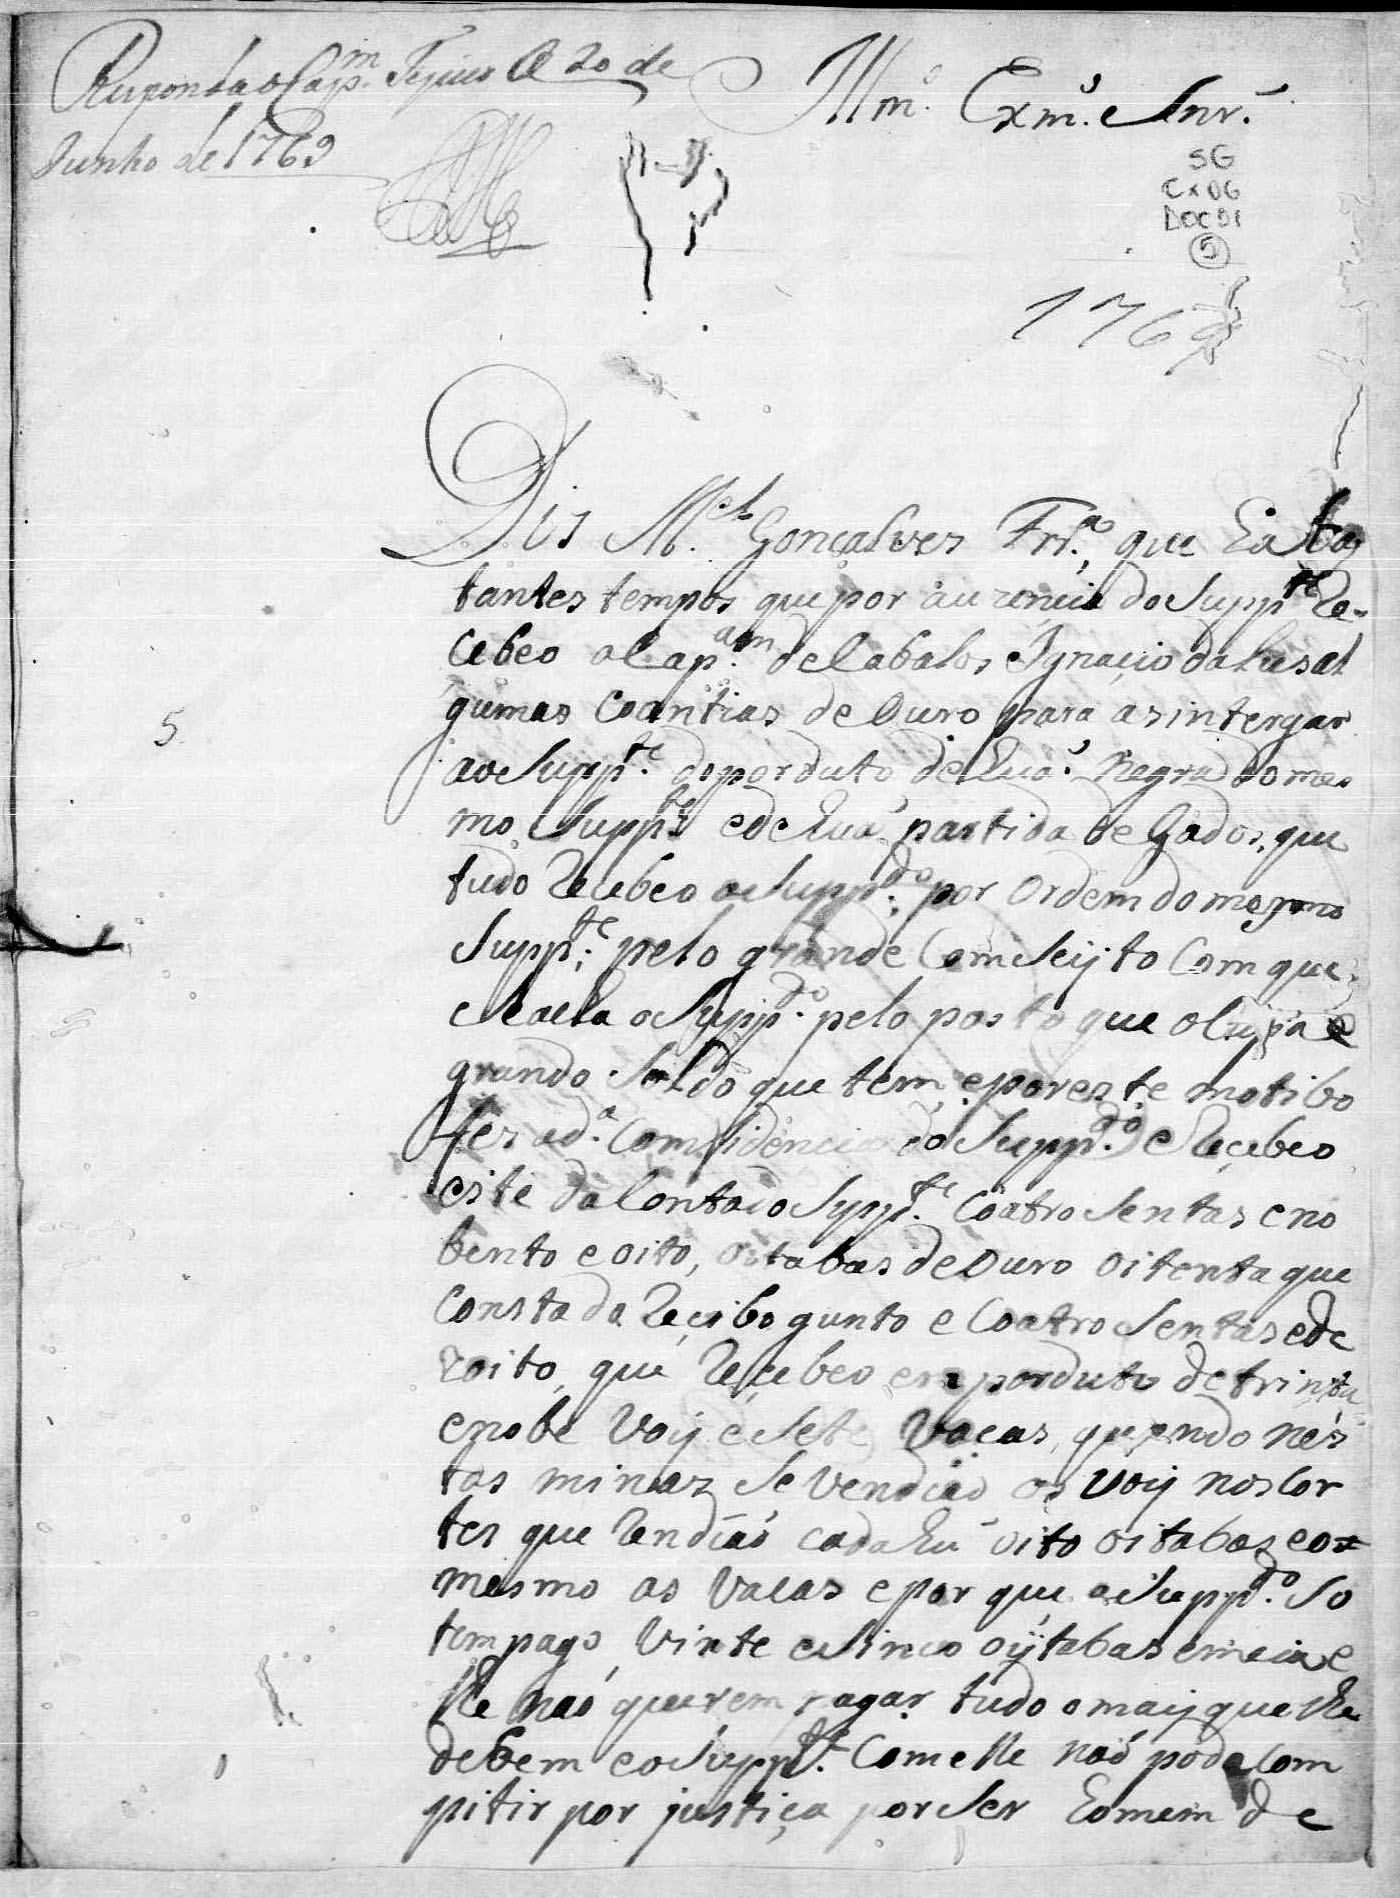 Responda o Cap.m Tejuco a 20 de
Junho de 1769
Illm.o Exm.o Snr.
SG
CX 06
DOC 01
5
1769
Dis M.el Gonçalves Frr.a, que Ea bas
tantes tempos que por auzencia do Supp.te Re-
cebeo o Cap.am de Cabalos Ignacio da
gumas Coantias de Ouro para as intergar
ao Supp.te do porduto de huã Negra do mes
mo Supp.te e de huã partida de Gados, que
5
tudo Recebeo o Supp.do por Ordem do mesmo
Supp.te pelo grande Com Seyto Com que
o Supp.do pelo posto que e
grando Soldo que tem, e por este motibo
fes a d.a Comfidencia do Supp.do e Recebeo
este da Conta do Supp.te Coatro Sentas e no
bento e oito, oitabas de Ouro oitenta que
Consta da Recibo gunto e Coatro Sentas e de
zoito, que Recebeo em porduto de trinta
e nobe Voiy e Sete Vacas, quando nes
tas minas Se Vendiaõ os Voiy nos Cor
tes que Rendiaõ cada hũ oito oitabas e o
mesmo as Vacas e por que o Supp.do So
tem pago Vinte e Sinco oytabas e meia e
lhe naõ querem pagar tudo o maiy que lhe
debem e o Supp.te Com elle naõ pode Com
pitir por justiça por Ser Eomem de